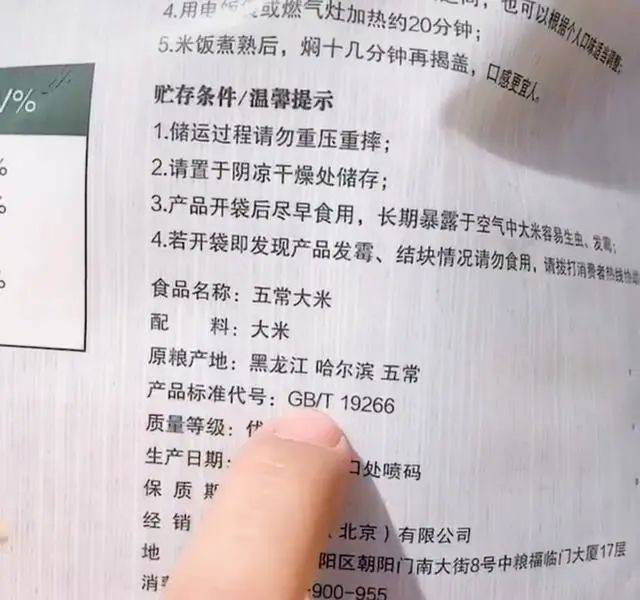 4.用电饭煲或燃气灶加热约20分钟；
也可以根据个人口味适当调整；
5.米饭煮熟后，焖十几分钟再揭盖，口感更宜人。
贮存条件/温馨提示
1.储运过程请勿重压重摔；
2.请置于阴凉干燥处储存；
3.产品开袋后尽早食用，长期暴露于空气中大米容易生虫、发霉；
4.若开袋即发现产品发霉、结块情况请勿食用，请拨打消费者热线
/%
%
%
%
食品名称：五常大米
配 料：大米
原粮产地：黑龙江 哈尔滨 五常
产品标准代号：GB/T 19266
质量等级：优
生产日期： 口处喷码
保 质 期
经 销 （北京）有限公司
地 阳区朝阳门南大街8号中粮福临门大厦17层
消 -900-955